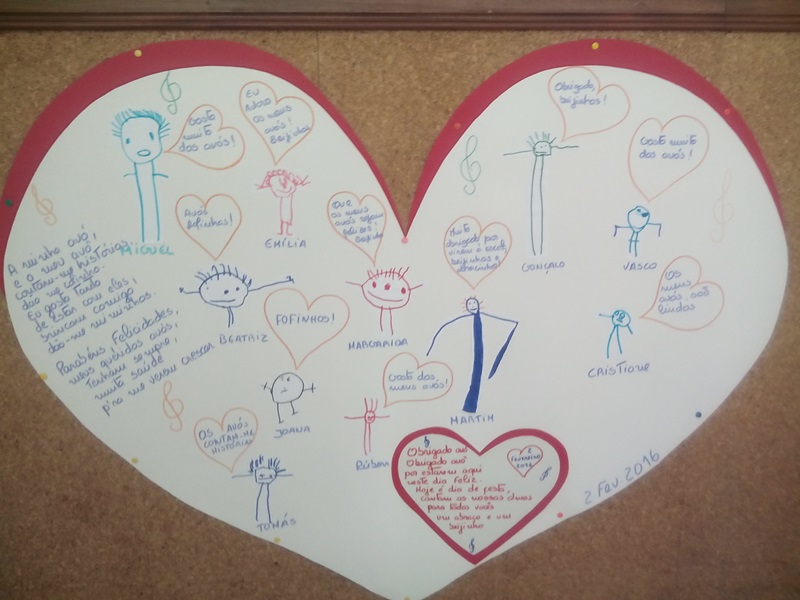 Gosto
muito
dos avós!
MIGUEL
EU
Adoro
os meus
avós!
Beijinhos
EMÍLIA
Avós
fofinhos!
BEATRIZ
Que
os meus
avós sejam
felizes!
Beijinho
MARGARIDA
FOFINHOS!
JOANA
Os avós
contam-me
histórias
TOMÁS
Gosto dos
meus avós!
Rúben
Muito
obrigado por
virem à escola
beijinhos e
MARTIM
Obrigado,
beijinhos!
GONÇALO
Gosto muito
dos avós!
VASCO
Os
meus
avós são
lindos
CRISTIANE
A minha avó
e o meu avô,
contam-me histórias
dão-me colinho.
Eu gosto tanto
de estar com eles,
brincam comigo
dão-me miminhos.
Parabéns, Felicidades,
meus queridos avós,
Tenham sempre,
muita saúde
p'ra me verem crescer
Obrigado avó
Obrigado avô
por estarem aqui
neste dia feliz.
Hoje é dia de festa,
cantam as nossas almas
para todos avós
um abraço e um
beijinho
2
fevereiro
2016
2 Fev 2016